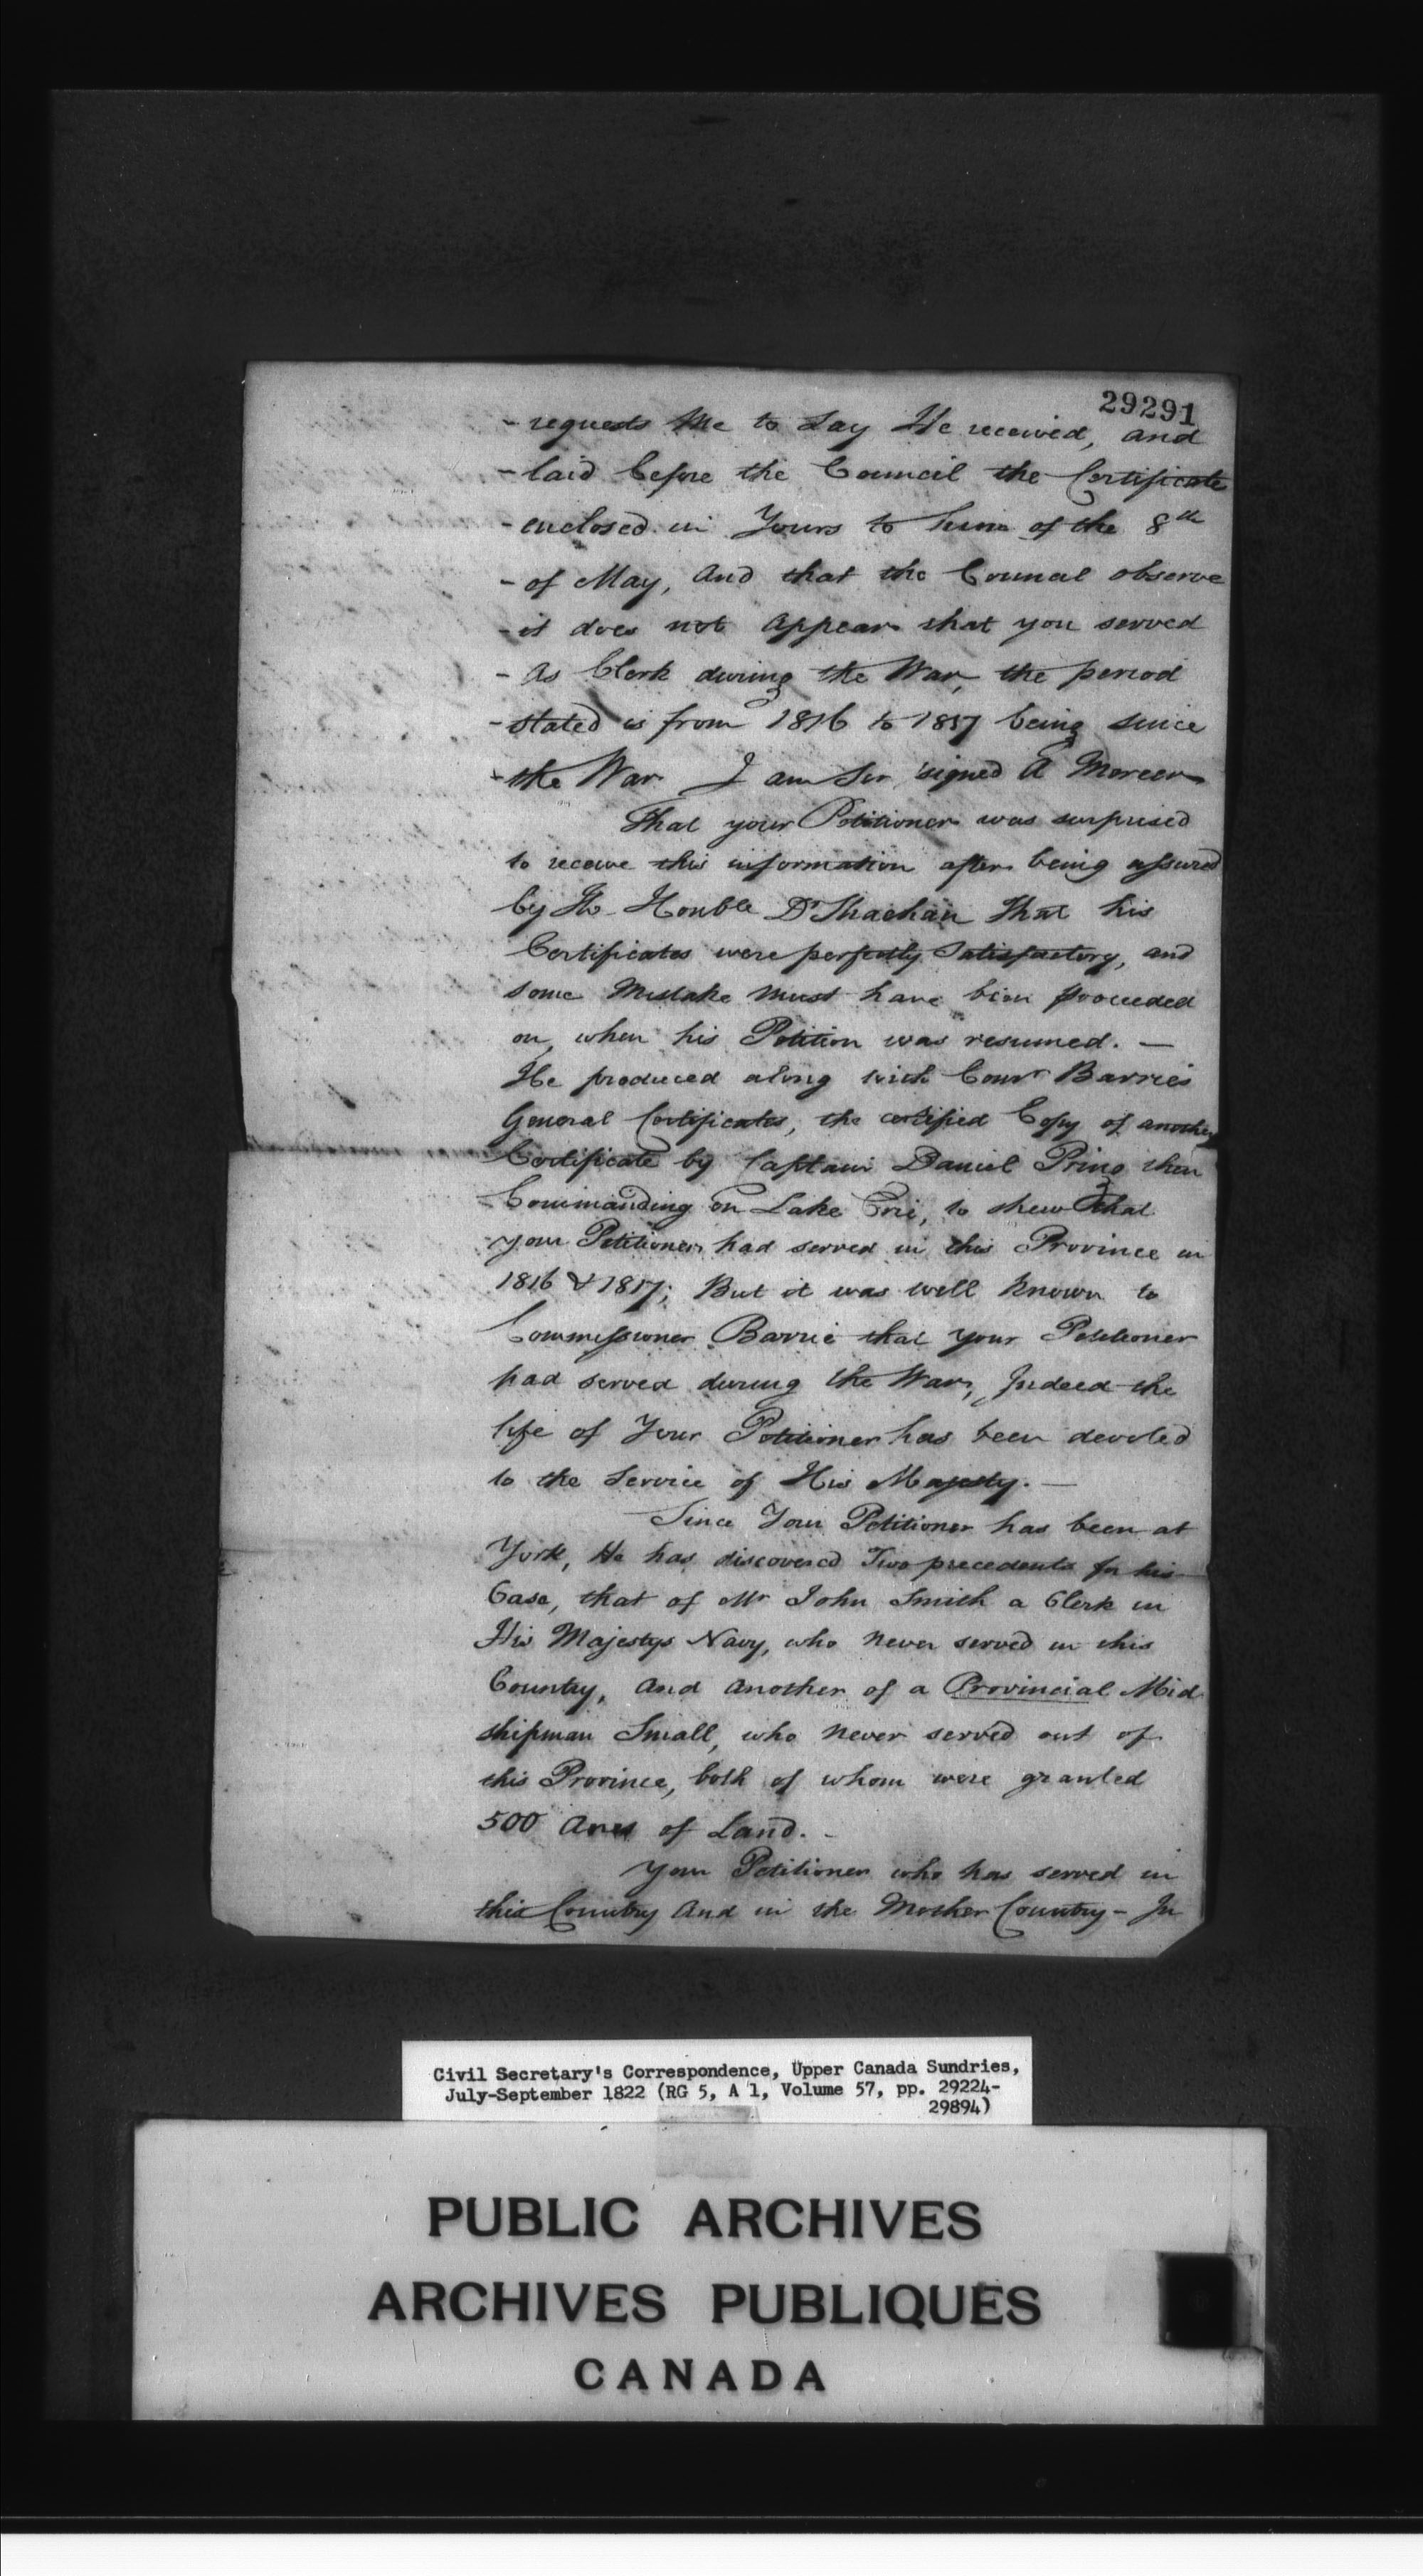 29291
- requests Me to Say He received, and
- laid before the Council the Certificate
- enclosed in Yours to him of the 8th
- of May, And that the Council observe
- it does not Appear that you served
- As Clerk during the War, the period
- stated is from 1816 to 1817 being since
- the War. I am Sir signed A Mercer
That your Petitioner was surprised
to receive this information after being assured
by The Honble Dr Strachan That his
Certificates were perfectly Satisfactory, and
some Mistake Must have been proceeded
on, when his Petition was resumed. —
He produced along with Comr Barries
General Certificates, the certified Copy of another
Certificate by Captain Daniel Pring then
Commanding on Lake Erie, to shew that
your Petitioner had served in this Province in
1816 & 1817; But it was well Known to
Commissioner Barrie that your Petitioner
had served during the War, Indeed the
life of Your Petitioner has been devoted
to the Service of His Majesty. —
Since Your Petitioner has been at
York, He has discovered Two precedents for his
Case, that of Mr John Smith a Clerk in
His Majestys Navy, who Never served in this
Country, And Another of a Provincial Mid
shipman Small, who Never served out of
this Province, both of whom were granted
500 Acres of Land. -
Your Petitioner who has served in
this Country And in the Mother Country - In
Civil Secretary's Correspondence, Upper Canada Sundries,
July-September 1822 (RG 5, A 1, Volume 57, pp. 29224-
29894)
PUBLIC ARCHIVES
ARCHIVES PUBLIQUES
CANADA